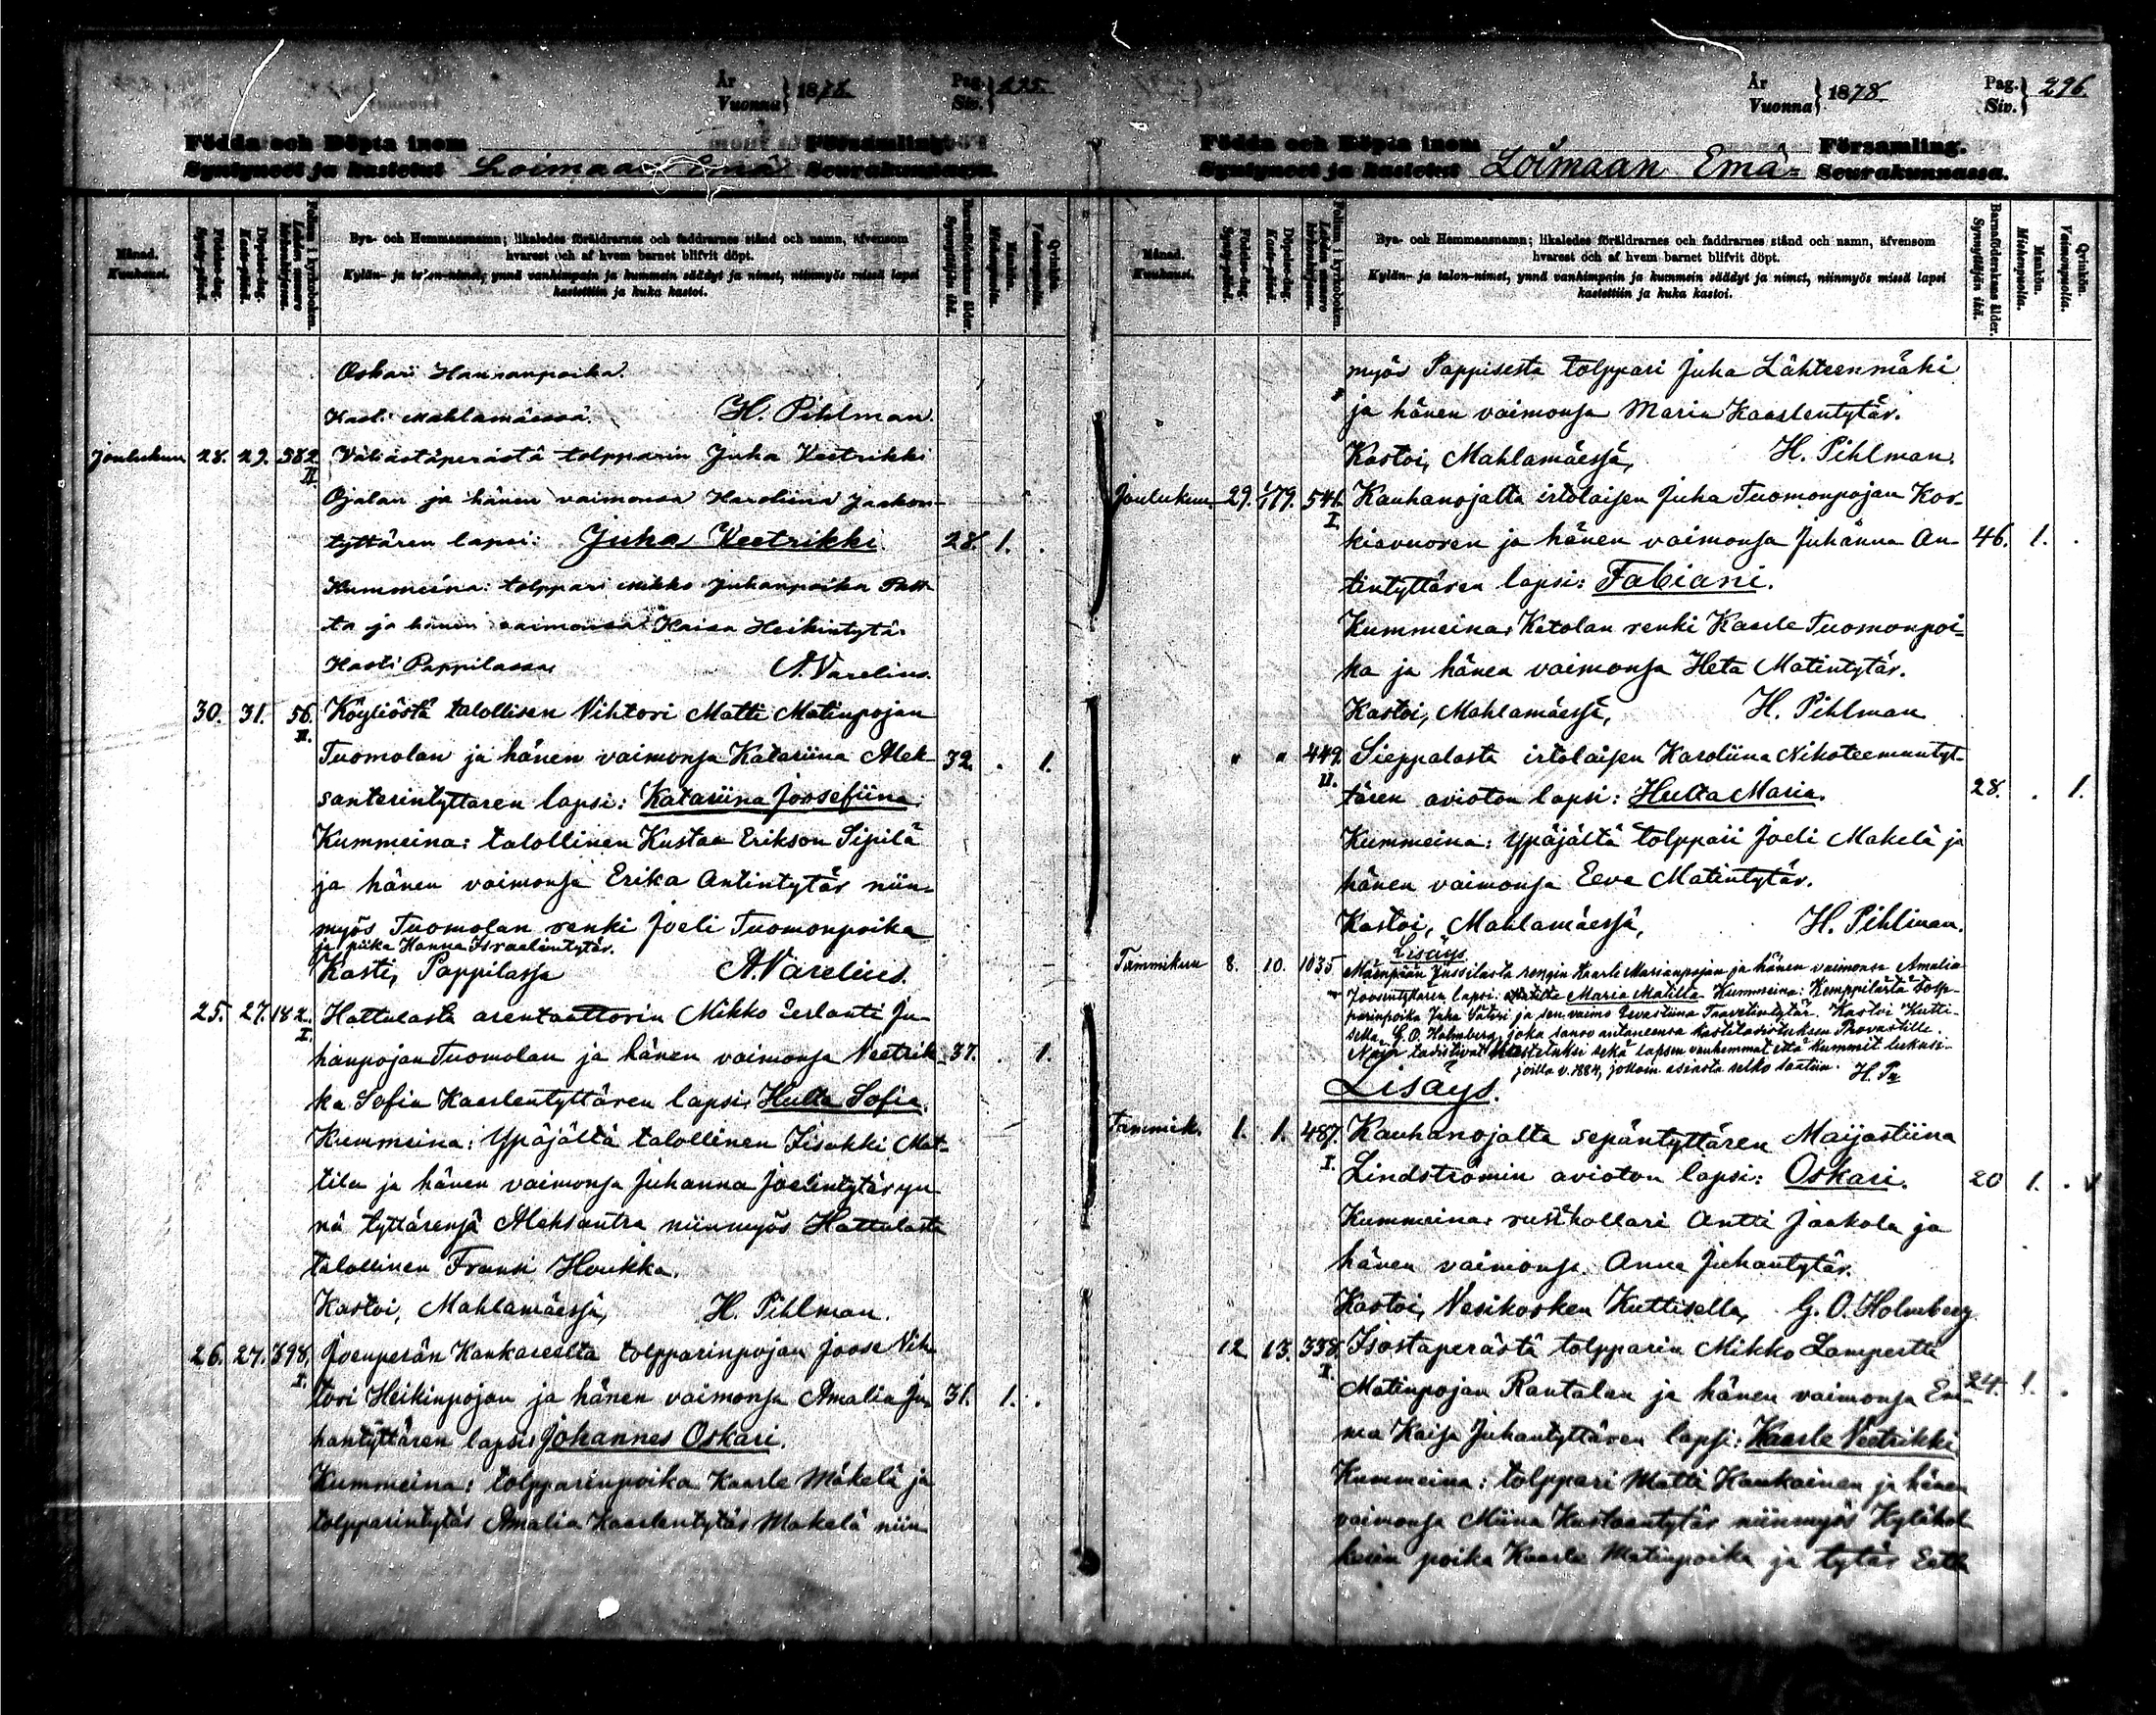 År
Vuonna } 1878
Pag.
Siv. } 295.
Födda och Döpta inom Församling.
Syntyneet ja kastetut Loimaan Emä Seurakunnassa.
Månad.
Kuukausi.
Födelse-dag.
Synty-päivä.
Döpelse-dag.
Kaste-päivä.
Folium i kyrkoboken.
Lehden numero kirkonkirjassa.
Bya- och Hemmansnamn; likaledes föräldrarnes och faddrarnes stånd och namn, äfvensom
hvarest och af hvem barnet blifvit döpt.
Kylän- ja talon-nimet, ynnä vanhimpain ja kummein säädyt ja nimet, niinmyös missä lapsi
kastettiin ja kuka kastoi.
Barnaföderskans ålder.
Synnyttäjän ikä.
Mankön.
Miehenpuolia.
Qvinkön.
Vaimonpuolia.
Oskari Hannanpoika.
Kasti Mahlamäessä. H. Pihlman.
Joulukuun 28. 29. 582 II. Väliästäperästä tolpparin Juha Veetrikki
Ojalan ja hänen vaimonsa Karoliina Jaakon-
tyttären lapsi: Juha Veetrikki. 28. 1.
Kummeina: tolppari Mikko Juhanpoika
ta ja hänen vaimonsa Kaisa Heikintytär
Kasti Pappilassa A. Varelius.
30. 31. 56. II. Köyliöstä talollisen Vihtori Matti Matinpojan
Tuomolan ja hänen vaimonsa Katariina Alek- 32. 1.
santerintyttären lapsi: Katariina Joosefiina.
Kummeina: talollinen Kustaa Erikson Sipilä
ja hänen vaimonsa Erika Antintytär niin-
myös Tuomolan renki Joeli Tuomonpoika
ja piika Hanna Israelintytär.
Kasti, Pappilassa A. Varelius.
25. 27. 182. I. Hattulasta arentaattorin Mikko Erlanti Ju-
hanpojan Tuomolan ja hänen vaimonsa Veetrik- 37. 1.
ka Sofia Kaarlentyttären lapsi, Hulta Sofia.
Kummeina: Ypäjältä talollinen Iisakki Mat-
tila ja hänen vaimonsa Juhanna Joelintytär yn-
nä tyttärensä Aleksantra niinmyös Hattulasta
talollinen Fransi Houkka.
Kastoi, Mahlamäessä, H. Pihlman.
26. 27. 398. I. Joenperän Kankareelta tolpparinpojan Joose Vih-
tori Heikinpojan ja hänen vaimonsa Amalia Ju- 31. 1.
hantyttären lapsi: Johannes Oskari.
Kummeina: tolpparinpoika Kaarle Mäkelä ja
tolpparintytär Amalia Kaarlentytär Makelä niin-
År
Vuonna } 1878
Pag.
Siv. } 296.
Födda och Döpta inom Församling.
Syntyneet ja kastetut Loimaan Emä- Seurakunnassa.
Månad.
Kuukausi.
Födelse-dag.
Synty-päivä.
Döpelse-dag.
Kaste-päivä.
Folium i kyrkoboken.
Lehden numero kirkonkirjassa.
Bya- och Hemmansnamn; likaledes föräldrarnes och faddrarnes stånd och namn, äfvensom
hvarest och af hvem barnet blifvit döpt.
Kylän- ja talon-nimet, ynnä vanhimpain ja kummein säädyt ja nimet, niinmyös missä lapsi
kastettiin ja kuka kastoi.
Barnaföderskans ålder.
Synnyttäjän ikä.
Mankön.
Miehenpuolia.
Qvinkön.
Vaimonpuolia.
myös Pappisesta tolppari Juha Lähteenmäki
ja hänen vaimonsa Maria Kaarlentytär.
Kastoi, Mahlamäessä, H. Pihlman.
Joulukuun 29. 1/1 79. 546. I. Kauhanojalta irtolaisen Juha Tuomonpojan Kor-
kiavuoren ja hänen vaimonsa Juhanna An- 46. 1.
tintyttären lapsi: Fabiani.
Kummeina: Ketolan renki Kaarle Tuomonpoi-
ka ja hänen vaimonsa Heta Matintytär.
Kastoi, Mahlamäessä, H. Pihlman
" " 449. II. Sieppalasta irtolaisen Karoliina Nikoteemuntyt-
tären avioton lapsi: Hulta Maria. 28. 1.
Kummeina: Ypäjältä tolppari Joeli Makelä ja
hänen vaimonsa Eeva Matintytär.
Kastoi, Mahlamäessä, H. Pihlman.
Lisäys
Tammikuu 8. 10. 1035 Mäenpään Jussilasta rengin Kaarle Marianpojan ja hänen vaimonsa Amalia
Joosentyttären lapsi: Maria Matilta Kummeina: Kemppilästä tolp-
parinpoika Juha ja sen vaimo Eevastiina Taavetintytär. Kastoi Kutti-
sella G. O. Holmberg, joka sanoo antaneensa kastetodistuksen Provastille.
Näin todistivat sekä lapsen vanhemmat että kummit lukusi-
joilla v. 1884, jolloin asiasta selko saatiin. H. Pn
Lisäys.
Tammik. 1. 1. 487. I. Kauhanojalta sepäntyttären Maijastiina
Lindströmin avioton lapsi: Oskari. 20 1.
Kummeina: rusthollari Antti Jaakola ja
hänen vaimonsa Anna Juhantytär.
Kastoi, Vesikosken Kuttisella, G. O. Holmberg.
12 13. 338. I. Isostaperästä tolpparin Mikko Lampertti
Matinpojan Rantalan ja hänen vaimonsa Em- 24. 1.
ma Kaisa Juhantyttären lapsi: Kaarle Veetrikki
Kummeina: tolppari Matti Kankainen ja hänen
vaimonsa Miina Kustaantytär niinmyös
poika Kaarle Matinpoika ja tytär